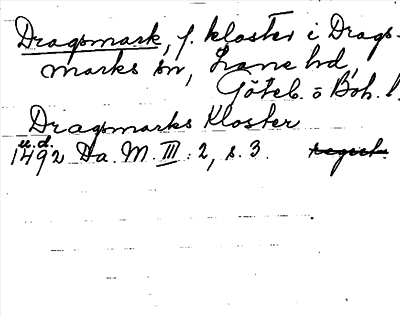 Dragsmark, f. kloster i Drags-
marks sn, Lane hd,
Göteb. o Boh. l.
Dragsmarks Kloster
u.d.
1492 Da. M. III: 2, s. 3. regist.